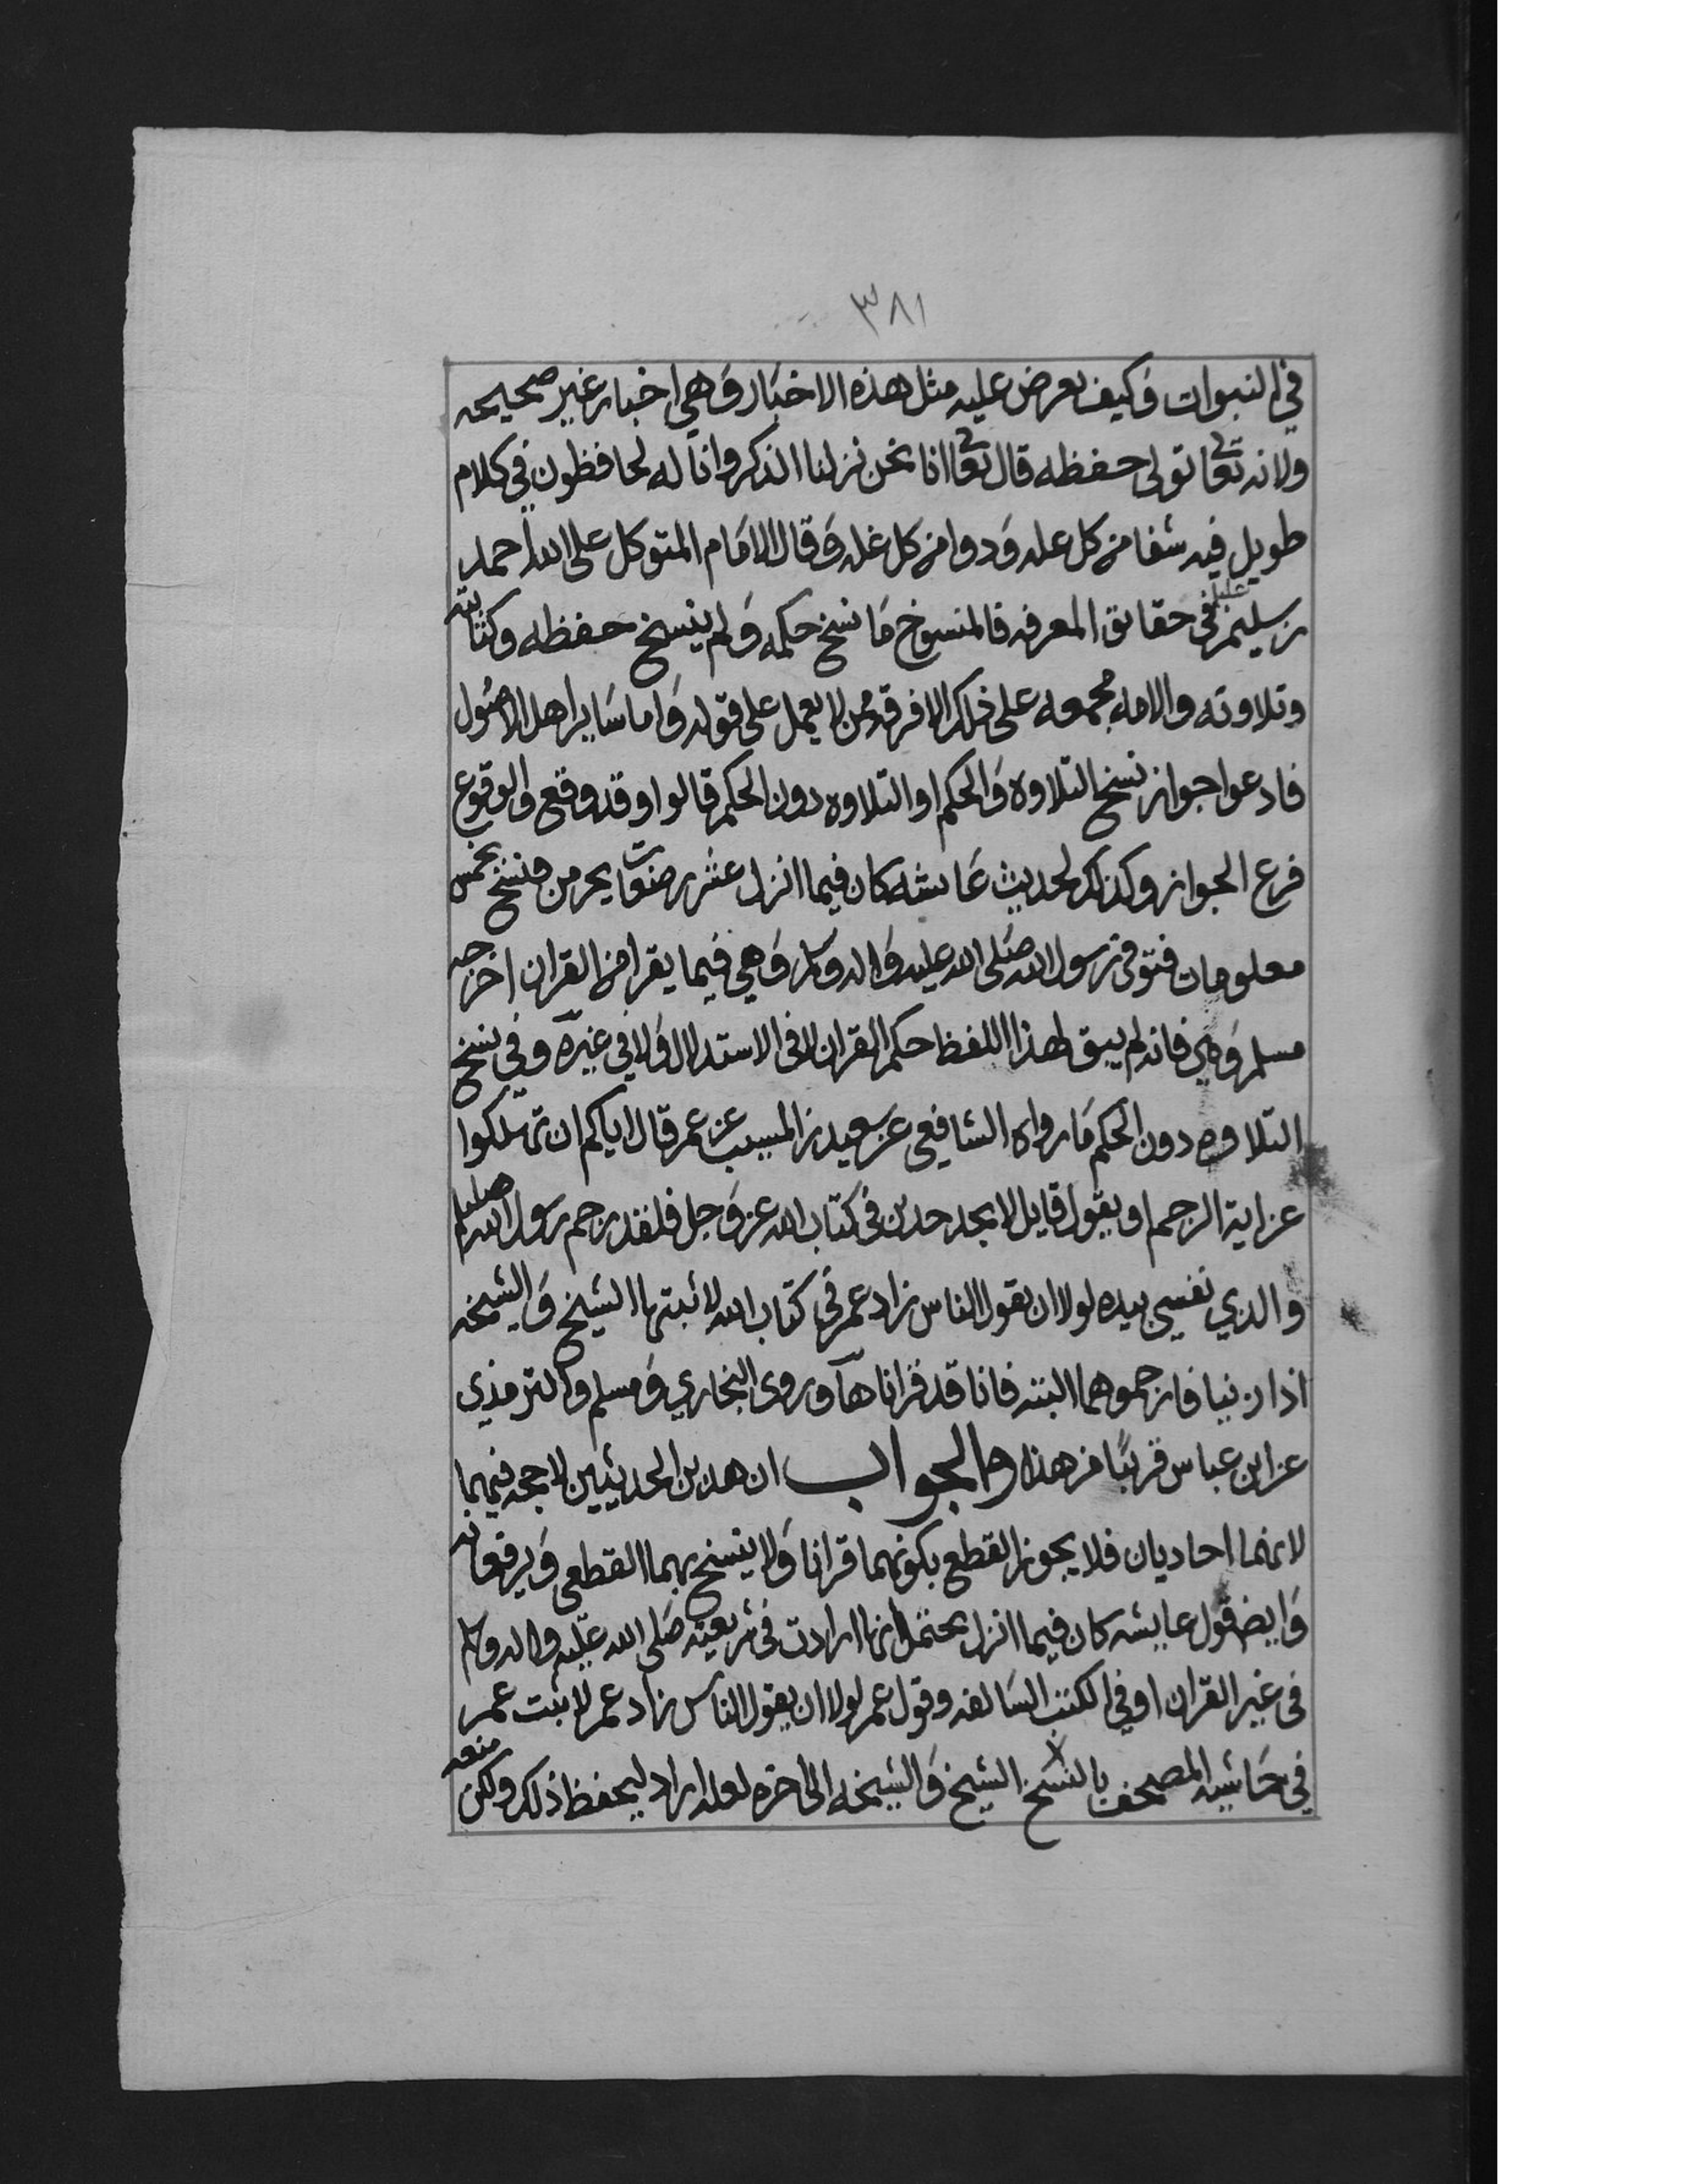 ٣٨١
في النبوات وكيف يعرض عليه مثل هذه الاخبار وهي اخبار غير صحيحه
ولانه تعالى تولى حفظه قال تعالى انا نحن نزلنا الذكر وانا له لحافظون في كلام
طويل فيه شفا من كل عله ودوا من كل غله وقال الامام المتوكل على الله احمد
بن سليمن عليلم في حقايق المعرفه فالمنسوخ ما نسخ حكمه ولم ينسخ حفظه وكتابته
وتلاوته والامه مجمعه على ذلك الا فرقه ممن لا يعمل على قوله واما ساير اهل الاصول
فادعوا جواز نسخ التلاوه والحكم او التلاوه دون الحكم قالوا وقد وقع والوقوع
فرع الجواز وكذلك لحديث عايشه كان فيما انزل عشر رضعات يحرمن فنسخ بخمس
معلومات فتوفي رسول الله صلى الله عليه واله وسلم وهي فيما يقرا من القران اخرجه
مسلم وهي فانه لم يبق لهذا اللفظ حكم القران لا في الاستدلال ولا في غيره وفي نسخ
التلاوه دون الحكم ما رواه الشافعي عن سعيد بن المسيب عن عمر قال اياكم ان تهلكوا
عن اية الرجم او يقول قايل لا نجد حدين في كتاب الله عز وجل فلقد رجم رسول الله صلعم
والذي نفسي بيده لولا ان يقول الناس زاد عمر في كتاب الله لاثبتها الشيخ والشيخه
اذا زنيا فارجموهما البته فانا قد قراناها وروى البخاري ومسلم والترمذي
عن ابن عباس قريبا من هذا والجواب ان هذين الحديثين لا حجه فيهما
لانهما احاديان فلا يجوز القطع بكونهما قرانا ولا ينسخ بهما القطعي ويرفعانه
وايض قول عايشه كان فيما انزل يحتمل انها ارادت في شريعته صلى الله عليه واله وسلم
في غير القران او في الكتب السالفه وقول عمر لولا ان يقول الناس زاد عمر لاثبت عمر
في حاشيه المصحف بالنسخ الشيخ والشيخه الى اخره لعله اراد ليحفظ ذلك ولكن منعه